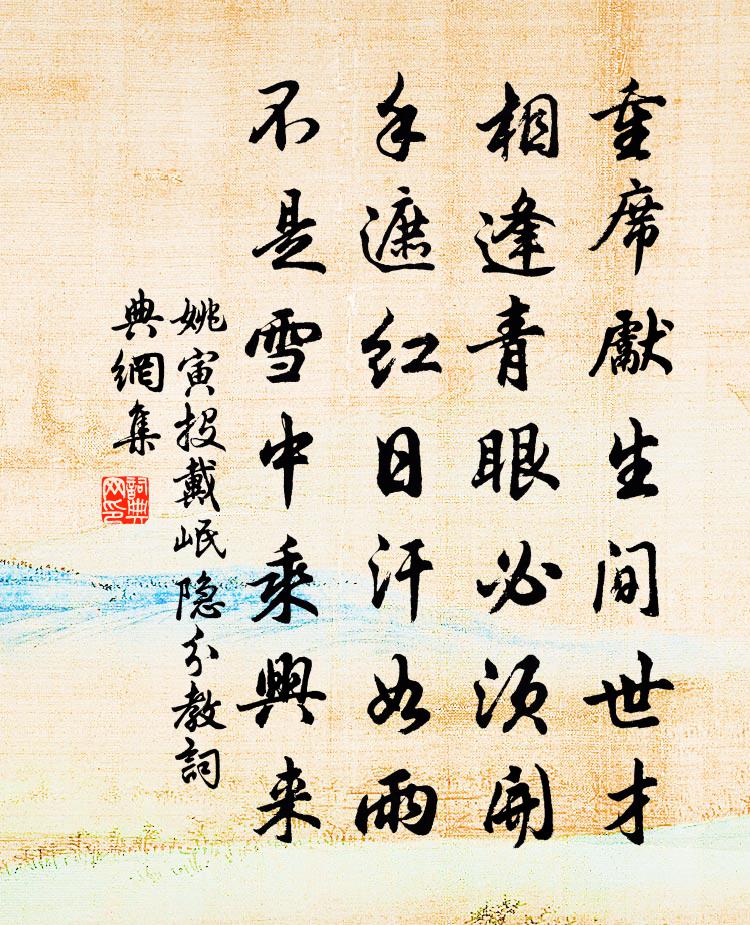 重席獻生间世才
相逢青眼必须開
手遮红日汗如雨
不是雪中乘興来
姚寅投戴岷隐分教詞
典網集
詞典
网印